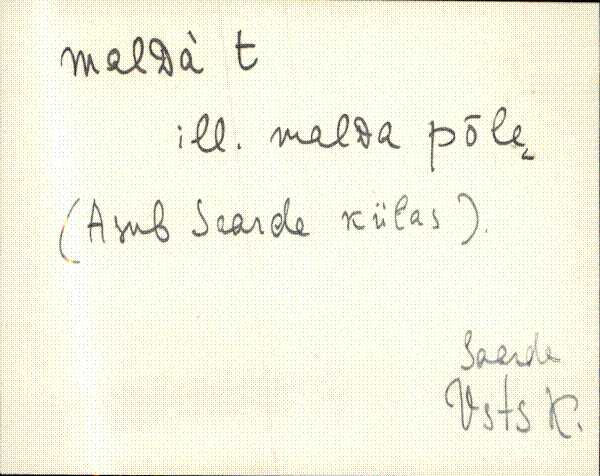 malᴅà t
ill. malᴅa põlẹ
(Asub Saarde külas).
Saarde
Vsts K.